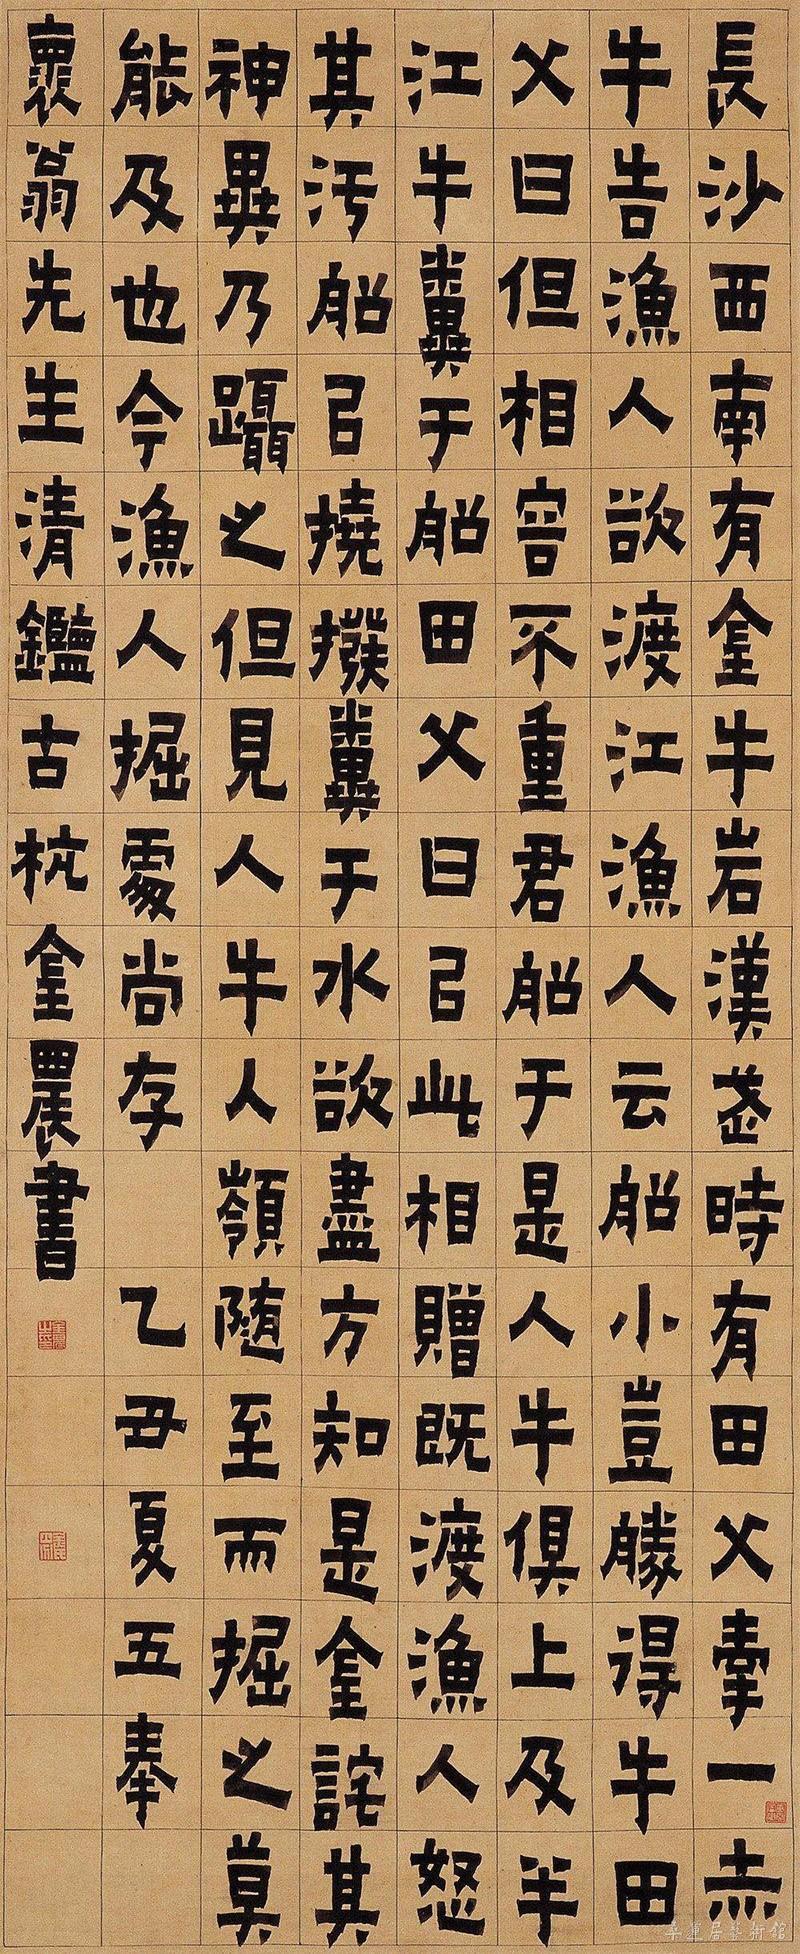 長沙西南有金牛岩漢武時有田父牽一赤
牛告漁人欲渡江漁人云船小豈勝得牛田
父曰但相容不重君船于是人牛俱上及半
江牛糞于船田父曰㠯此相贈既渡漁人怒
其汚船㠯撓撥糞于水欲盡方知是金詫其
神異乃躡之但見人牛人嶺隨至而掘之莫
能及也今漁人掘處尚存 乙丑夏五奉
褱翁先生清鑑古杭金農書
桑蓮居藝術館